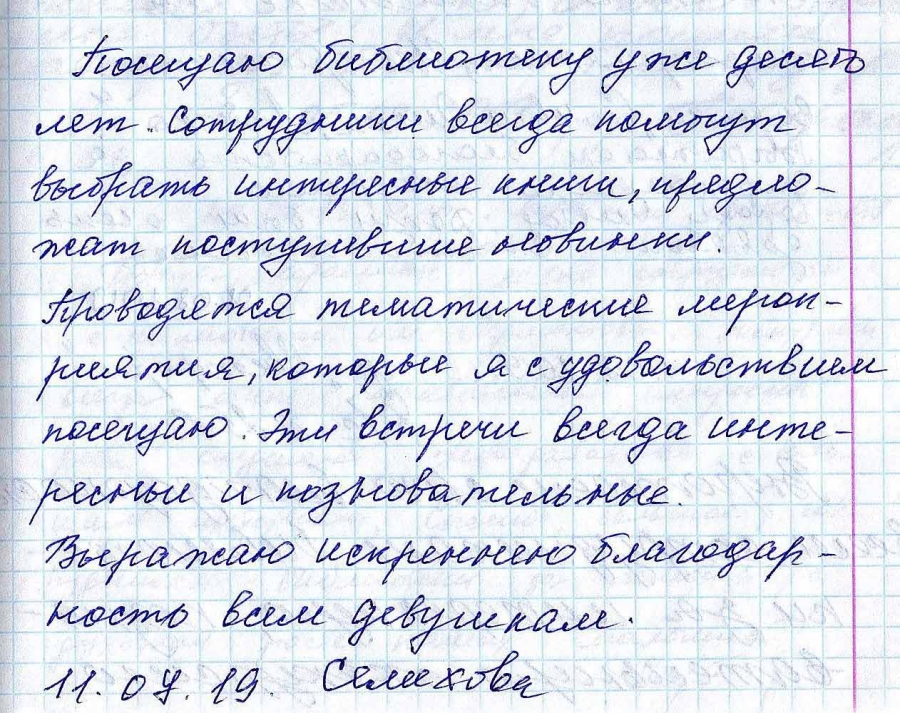 Посещаю библиотеку уже десять
лет. Сотрудники всегда помогут
выбрать интересные книги, предло-
жат поступившие новинки.
Проводятся тематические мероп-
риятия, которые я с удовольствием
посещаю. Эти встречи всегда инте-
ресные и познавательные.
Выражаю искреннею благодар-
ность всем девушкам.
11.07.19. Селихова